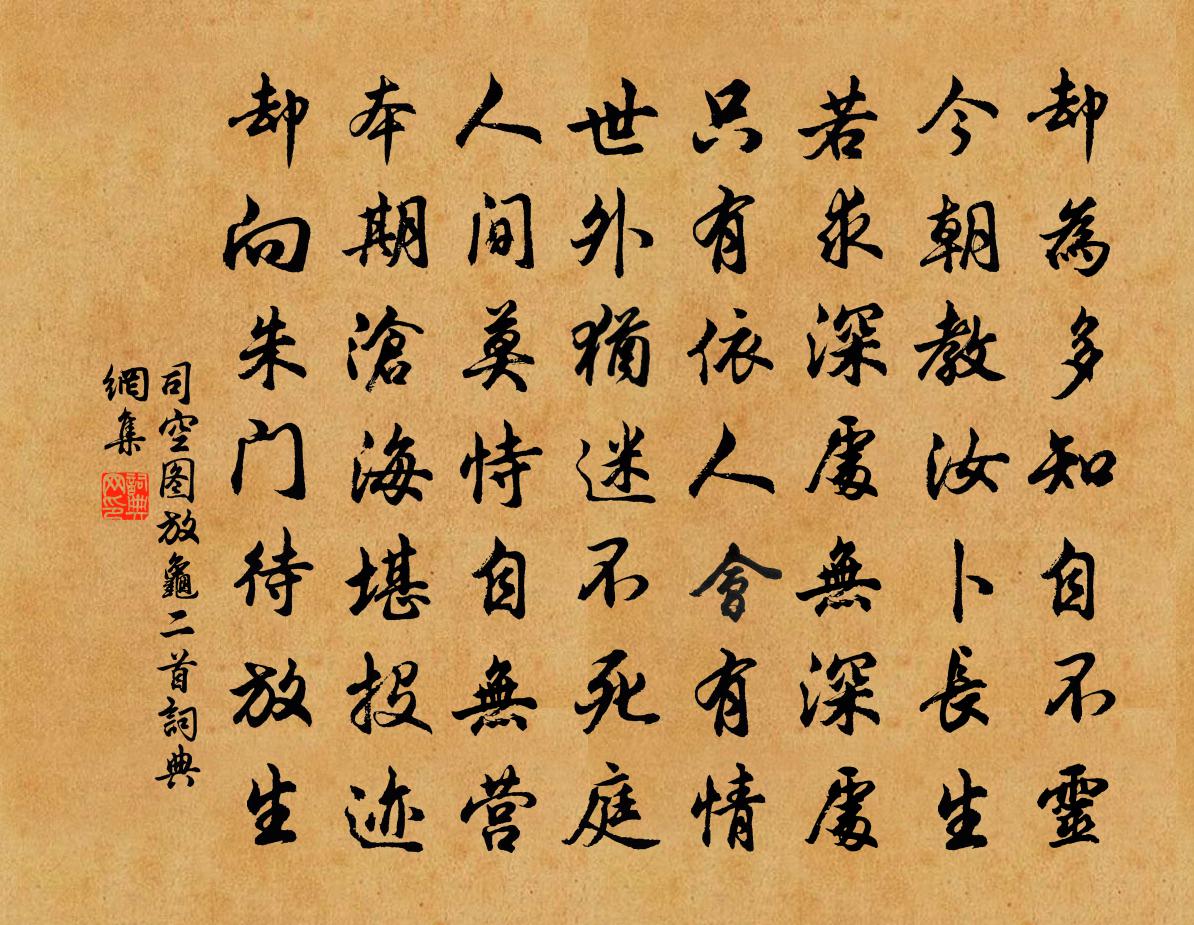 却為多知自不靈
今朝教汝卜長生
若求深處無深處
只有依人會有情
世外猶迷不死庭
人間莫恃自無营
本期滄海堪投迹
却向朱门待放生
司空图放龜二首詞典
網集
詞典
网印